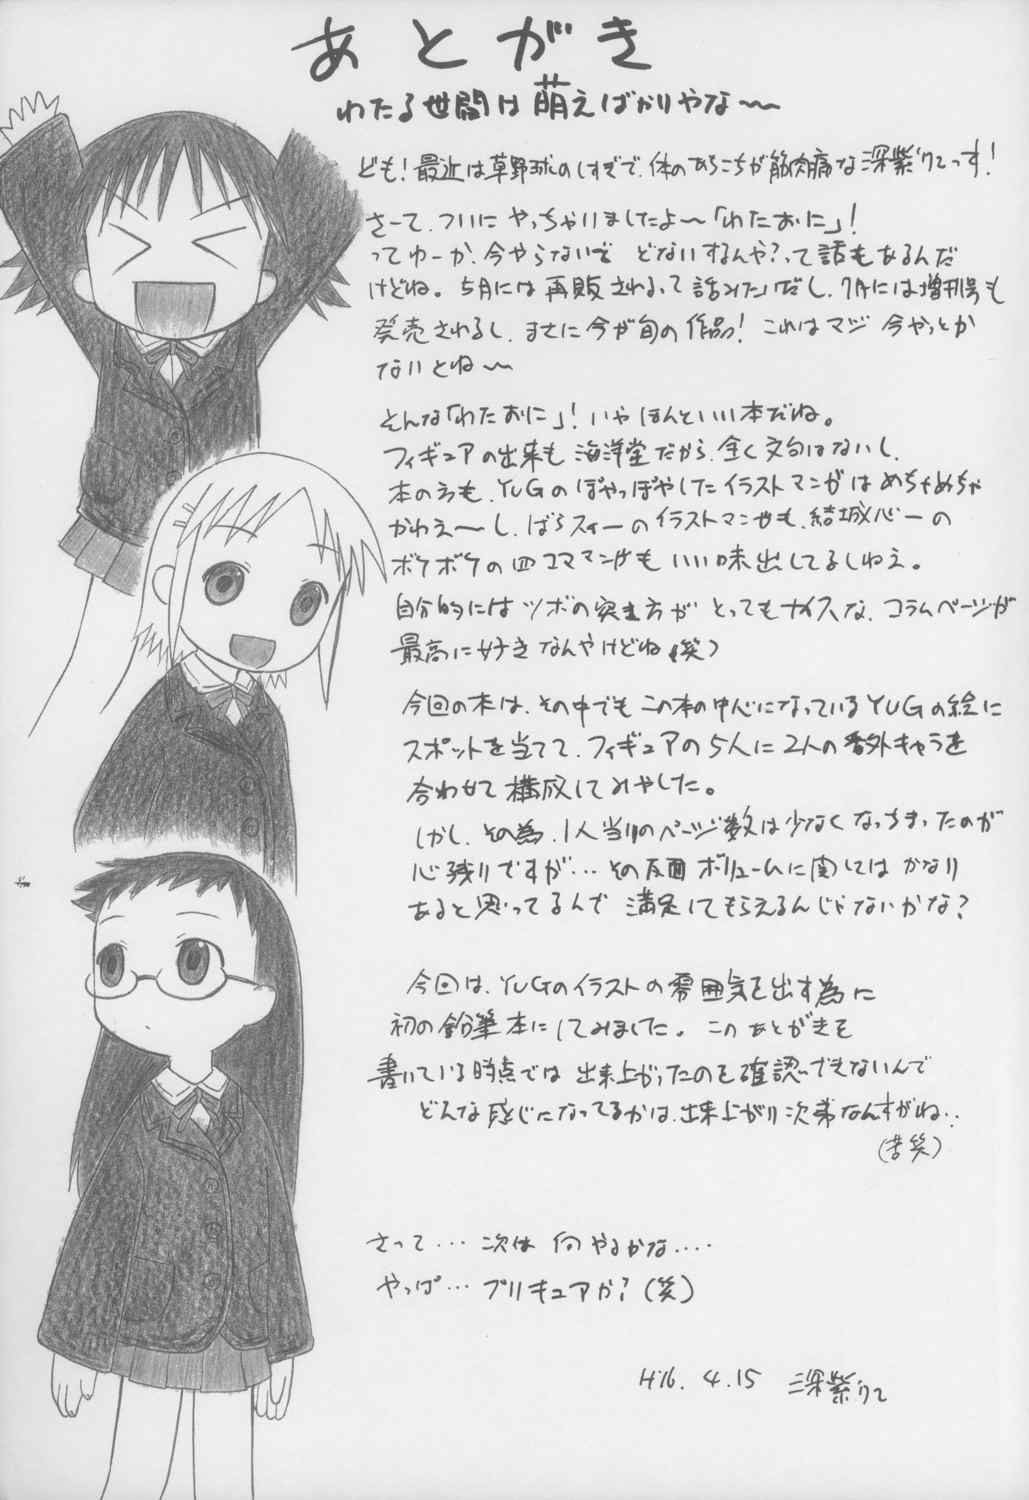 あとがき
わたる世間は萌えばかりやな～
ども！最近は草野球のしすぎで、体のあちこちが筋肉痛な深紫リてっす！
さーて、ついにやっちゃいましたよ～「わたおに」！
ってゆーか、今やらないで どないするんや？って話もあるんだ
けどね。5月には再販されるって話みたいだし、7月には増刊号も
発売されるし、まさに今が旬の作品！これはマジ 今やっとか
ないとね～
そんな「わたおに」！いやほんといい本だね。
フィギュアの出来も 海洋堂だから、全く文句はないし、
本の方も、YUGのぽやっぽやしたイラストマンガはめちゃめちゃ
かわえ～し、ばらスィーのイラストマンガも、結城心一の
ボケボケの四コママンガもいい味出してるしねえ。
自分的にはツボの突き方が とってもナイスな、コラムページが
最高に好きなんやけどね(笑)
今回の本は、その中でもこの本の中心になっているYUGの絵に
スポットを当てて、フィギュアの5人に2人の番外キャラを
合わせて構成してみやした。
しかし、その為、1人当りのページ数は少なくなっちまったのが
心残りですが…その反面ボリュームに関してはかなり
あると思ってるんで 満足してもらえるんじゃないかな？
今回は、YUGのイラストの雰囲気を出す為に
初の鉛筆本にしてみました。このあとがきを
書いている時点では 出来上がったのを確認できないんで
どんな感じになってるかは、出来上がり次第なんすがね‥
(苦笑)
さって… 次は 何やるかな‥‥
やっぱ… プリキュアか？(笑)
H16. 4.15 深紫リて